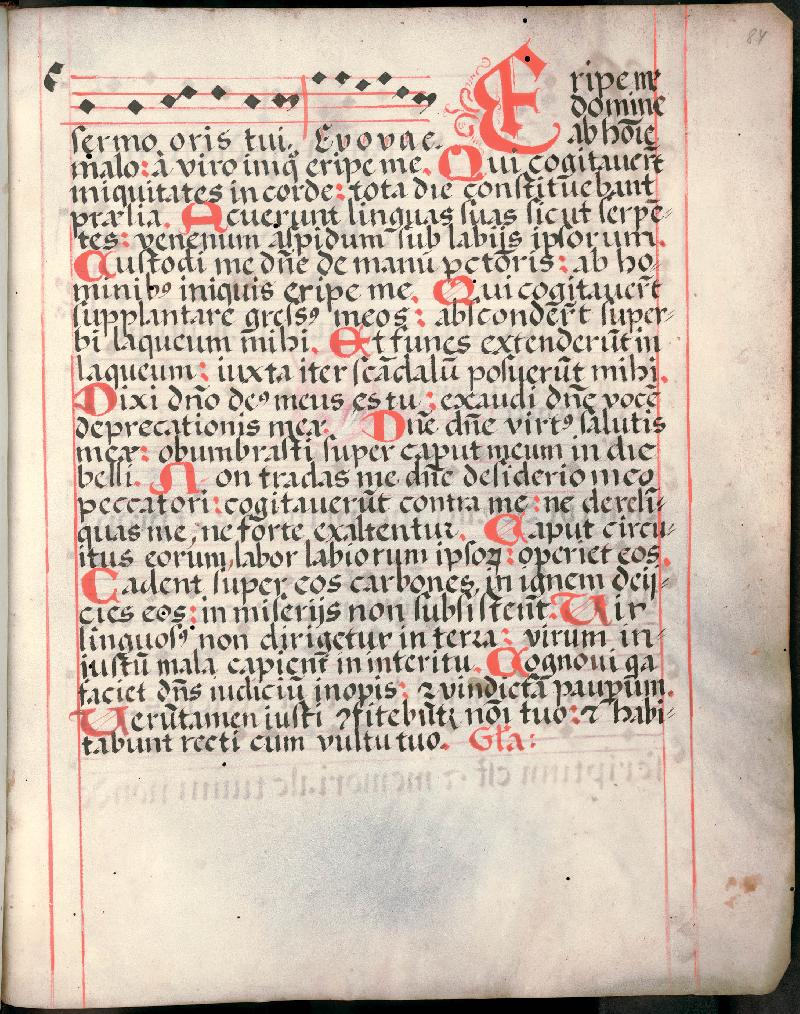 84
Eripe me
domine
sermo oris tui. Evovae. ab hōīe
malo: a viro iniq̄ eripe me. Qui cogitauert̄
iniquitates in corde: tota die constituebant
prælia. Acuerunt linguas suas sicut serpē-
tes: venenum aspidum sub labijs ipsorum.
Custodi me dn̄e de manu pctōris: ab ho-
minibꝰ iniquis eripe me. Qui cogitauert̄
supplantare gressꝰ meos: abscondert̄ super-
bi laqueum mihi. Et funes extenderūt in
laqueum: iuxta iter scādalū posuerūt mihi.
Dixi dn̄o deꝰ meus es tu: exaudi dn̄e vocē
deprecationis meæ. Dn̄e dn̄e virtꝰ salutis
meæ: obumbrasti super caput meum in die
belli. Non tradas me dn̄e desiderio meo
peccatori: cogitauerūt contra me: ne dereli-
quas me, ne forte exaltentur. Caput circu-
itus eorum, labor labiorum ipsoꝝ: operiet eos.
Cadent super eos carbones, in ignem deij-
cies eos: in miserijs non subsistent. Uir
linguosꝰ non dirigetur in terra: virum in-
iustū mala capient in interitu. Cognoui qa
faciet dn̄s iudiciū inopis: ⁊ vindictā paupūm.
Uerūtamen iusti ꝯfitebūtꝛ nōī tuo: ⁊ habi-
tabunt recti cum vultu tuo. Gl̄a: